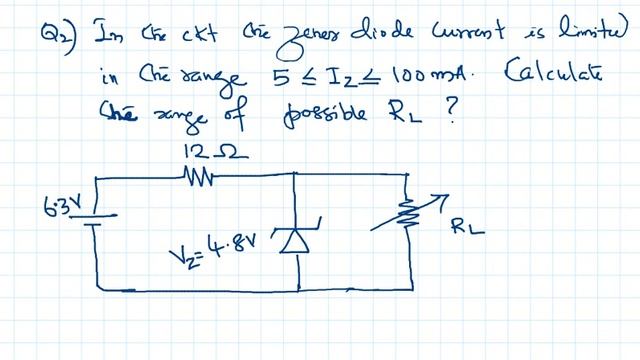 Q2) In the ckt the zener diode current is limited
in the range 5 ≤ I_Z ≤ 100 mA. Calculate
the range of possible R_L ?
12 Ω
6.3V
V_Z = 4.8V
R_L